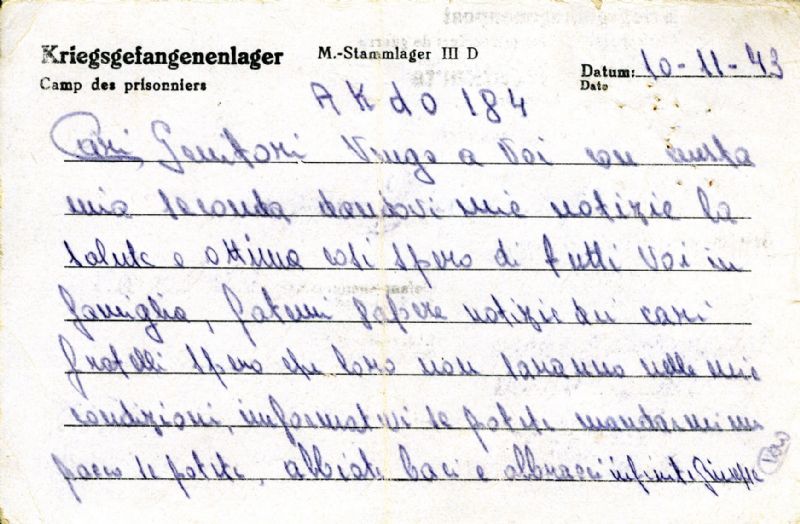 Kriegsgefangenenlager M.-Stammlager III D Datum: 10-11-43
Camp des prisonniers Date
AKdo 184
Cari Genitori Vengo a Voi con questa
mia seconda dandovi mie notizie la
salute e ottima cosi spero di tutti Voi in
famiglia, fatemi sapere notizie dei cari
fratelli spero che loro non saranno nelle mie
condizioni, informatevi se potete mandarmi un
pacco se potete, abbiate baci e abbracci infiniti Giuseppe